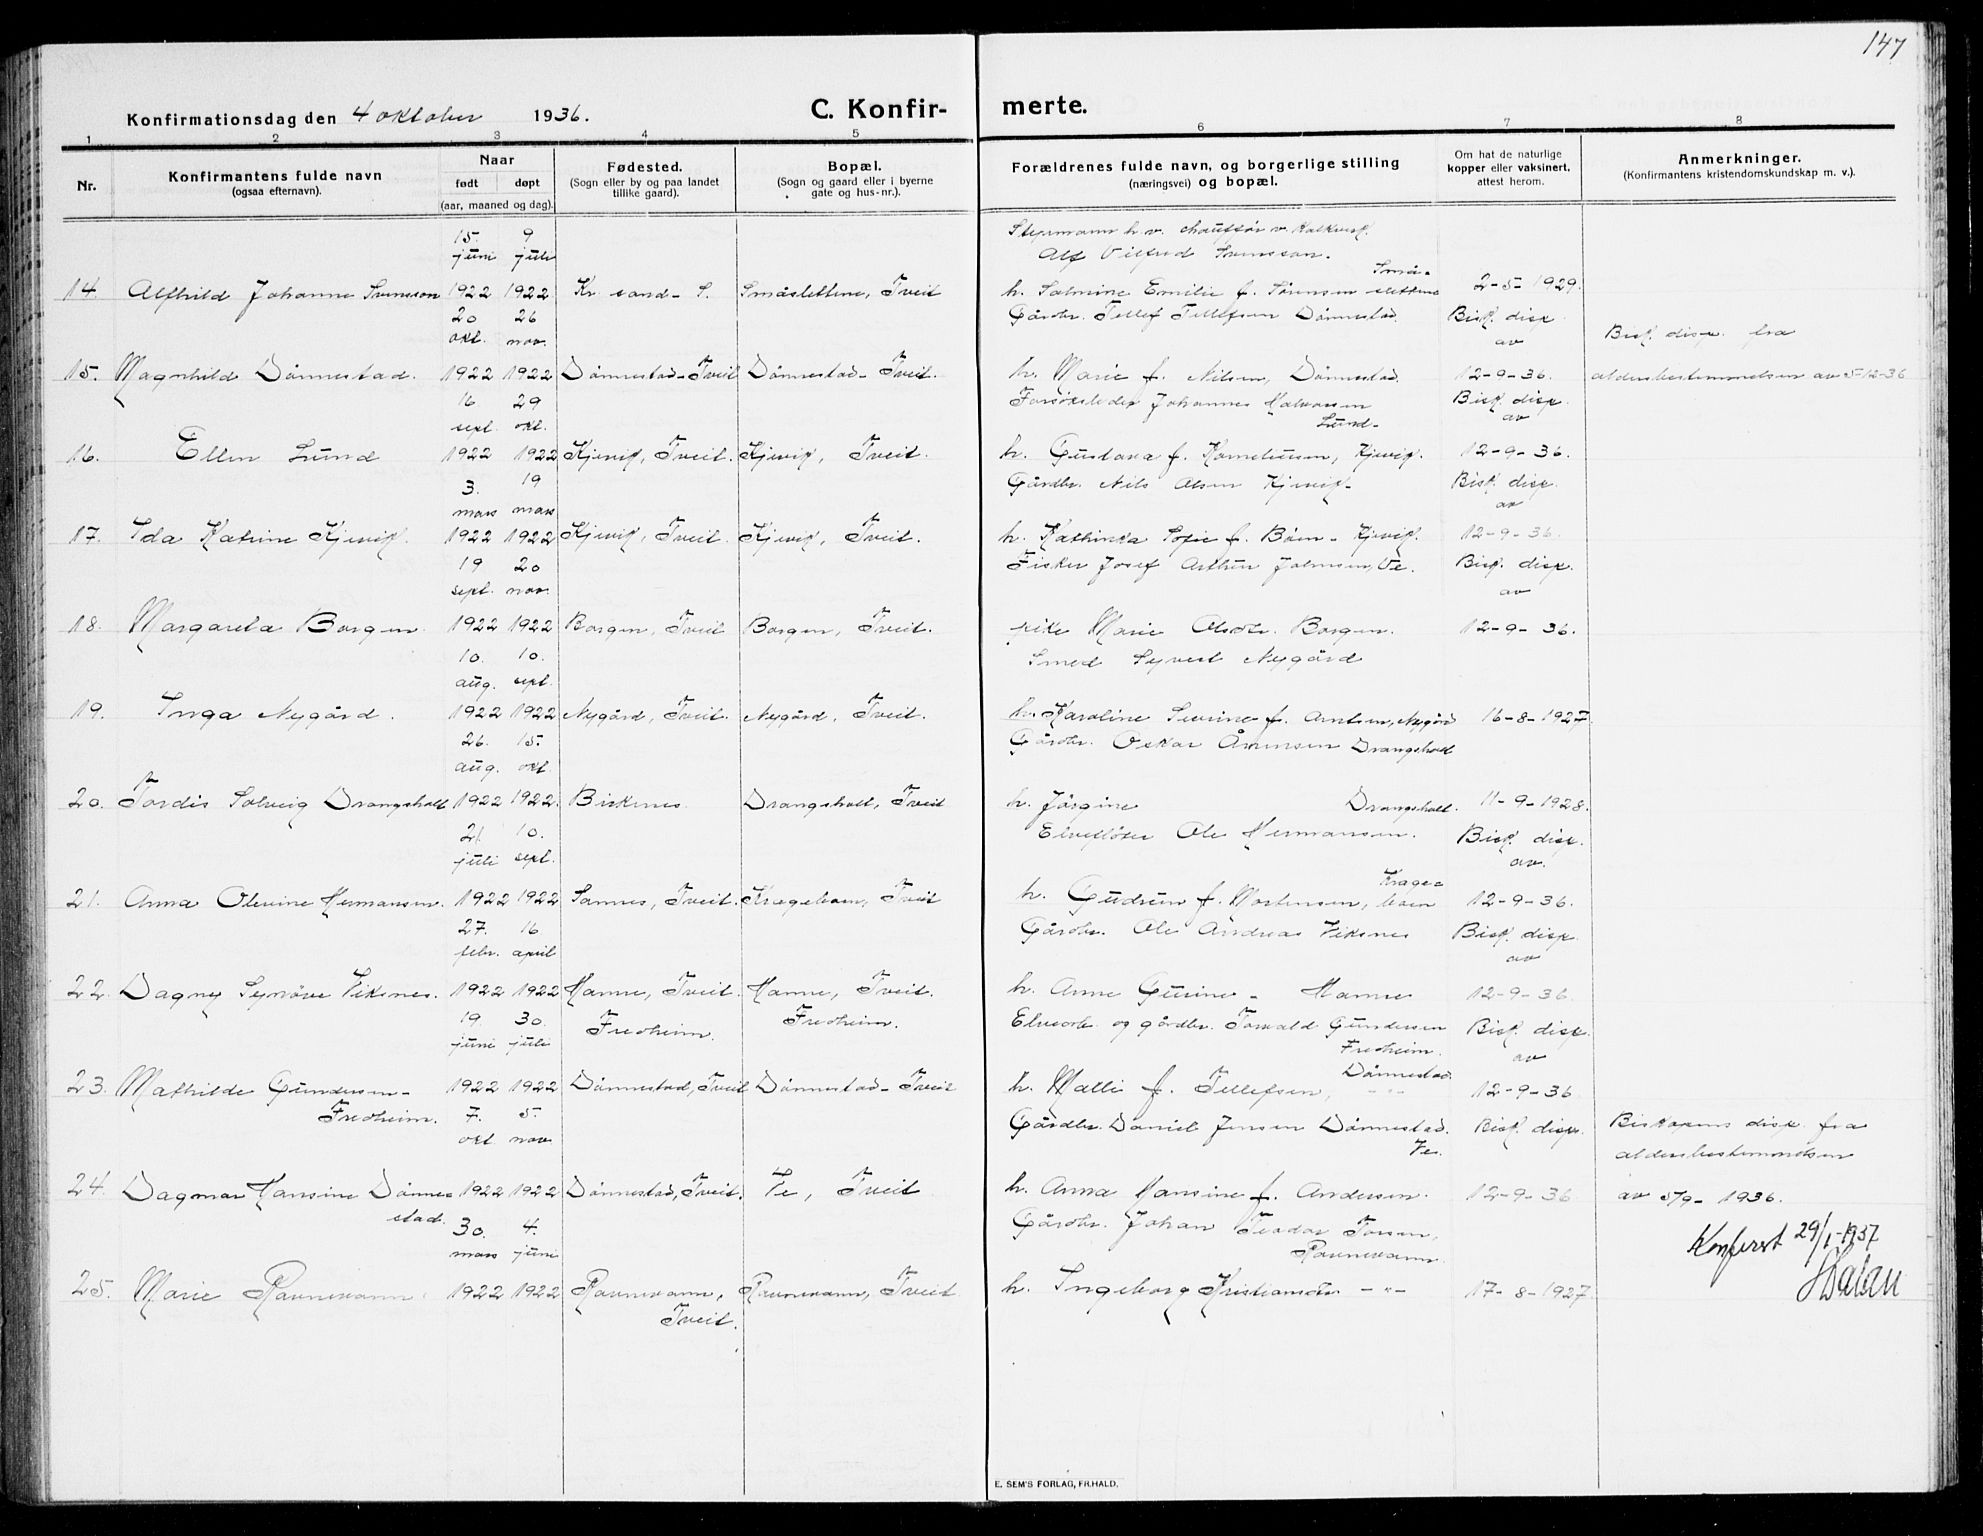 147
Konfirmationsdag den 4 oktober 1936. C. Konfir- merte.
1 2 3 4 5 6 7 8
Nr.
Konfirmantens fulde navn
(ogsaa efternavn).
Naar
født døpt
(aar, maaned og dag).
Fødested.
(Sogn eller by og paa landet
tillike gaard).
Bopæl.
(Sogn og gaard eller i byerne
gate og hus-nr.).
Forældrenes fulde navn, og borgerlige stilling
(næringsvei) og bopæl.
Om hat de naturlige
kopper eller vaksinert,
attest herom.
Anmerkninger.
(Konfirmantens kristendomskundskap m. v.).
15. 9 Styrmann h.v. chauffør v. Kalkverk.
juni juli Alf Vilfred Svensson.
Små-
14. Alfhild Johanne Svensson 1922 1922 Kr. sand - S. Småslettene, Tveit h. Salmine Emilie f. Sørensen slettene 2-5-1929.
20 26 Gårdbr. Tellef Tellefsen Dønnestad. Bisk. disp.
okt. nov. av Bisk. disp. fra
15. Magnhild Dønnestad. 1922 1922 Dønnestad - Tveit Dønnestad - Tveit. h. Marie f. Nilsen, Dønnestad. 12-9-36. aldersbestemmelsen av 5-12-36
16 29 Forsøksleder Johannes Halvorsen Bisk. disp.
sept. okt. Lund - av
16. Ellen Lund 1922 1922 Kjevik, Tveit. Kjevik, Tveit. h. Gustava f. Korneliussen, Kjevik. 12-9-36.
3. 19 Gårdbr. Nils Olsen Kjevik - Bisk. disp.
mars mars av
17. Ida Katrine Kjevik. 1922 1922 Kjevik, Tveit. Kjevik, Tveit. h. Kathinka Sofie f. Bøen - Kjevik. 12-9-36.
19 20 Fisker Josef Arthur Johnsen, Ve. Bisk. disp.
sept. nov. av
18. Margareta Borgen. 1922 1922 Borgen, Tveit Borgen, Tveit. pike Marie Olsdtr. Borgen. 12-9-36.
10. 10. Smed Syvert Nygård
aug. sept.
19. Inga Nygård. 1922 1922 Nygård, Tveit. Nygård, Tveit. h. Karoline Severine f. Arntsen, Nygård 16-8-1927.
26. 15. Gårdbr. Oskar Ånensen Drangsholt
aug. okt.
20. Tordis Solveig Drangsholt 1922 1922. Birkenes. Drangsholt, Tveit h. Jørgine Drangsholt. 11-9-1928.
21 10. Elvefløter Ole Hermansen. Bisk. disp.
juli sept. av.
Krage-
21. Anna Olevine Hermansen. 1922 1922 Sannes, Tveit. Krageboen, Tveit h. Gudrun f. Mortensen, boen 12-9-36.
27. 16 Gårdbr. Ole Andreas Viksnes Bisk. disp.
febr. april av
22. Dagny Synøve Viksnes. 1922 1922 Hamre, Tveit. Hamre, Tveit. h. Anne Gurine - Hamre 12-9-36.
19 30. Fredheim. Fredheim. Elvearb. og gårdbr. Torvald Gundersen Bisk. disp.
juni juli Fredheim. av
Dønnestad.
23. Mathilde Gundersen - 1922 1922 Dønnestad, Tveit Dønnestad - Tveit h. Malli f. Tellefsen, - " - 12-9-36
Fredheim. 7. 5. Gårdbr. Daniel Jensen Dønnestad. Bisk. disp. Biskopens disp. fra
okt nov. Ve. aldersbestemmelsen
24. Dagmar Hansine Dønne- 1922 1922 Dønnestad, Tveit. Ve, Tveit h. Anna Hansine f. Andersen. 12-9-36 av 5/9-1936.
stad. 30. 4. Gårdbr. Johan Teodor Torsen,
mars juni Ravnevann. Konferert 29/1-1937
25. Marie Ravnevann. 1922 1922 Ravnevann, Ravnevann, Tveit h. Ingeborg Kristiansdtr. - " - 17-8-1927.
Tveit.
E. SEM'S FORLAG, FR.HALD.